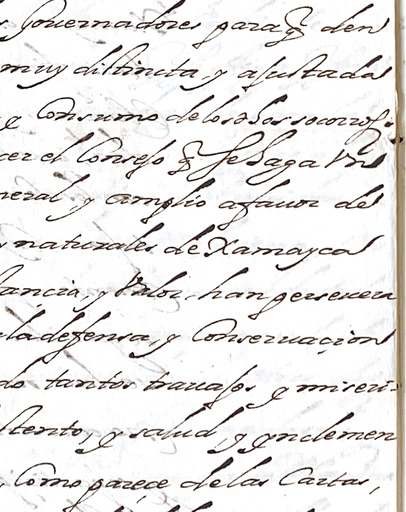 Gouernadores para q̃ den
muy distincta, y ajustada
e Consumo de los dhos socorros.
cer el Consejo q̃ Se haga Vn
neral y amplio a fauor de
s naturales de Xamayca
tancia, y Valor, han perseuera
la defensa, y Conseruaçion
do tantos trauajos e miseri-
stento, y salud, y ynclemen
Como pareçe de las Cartas,